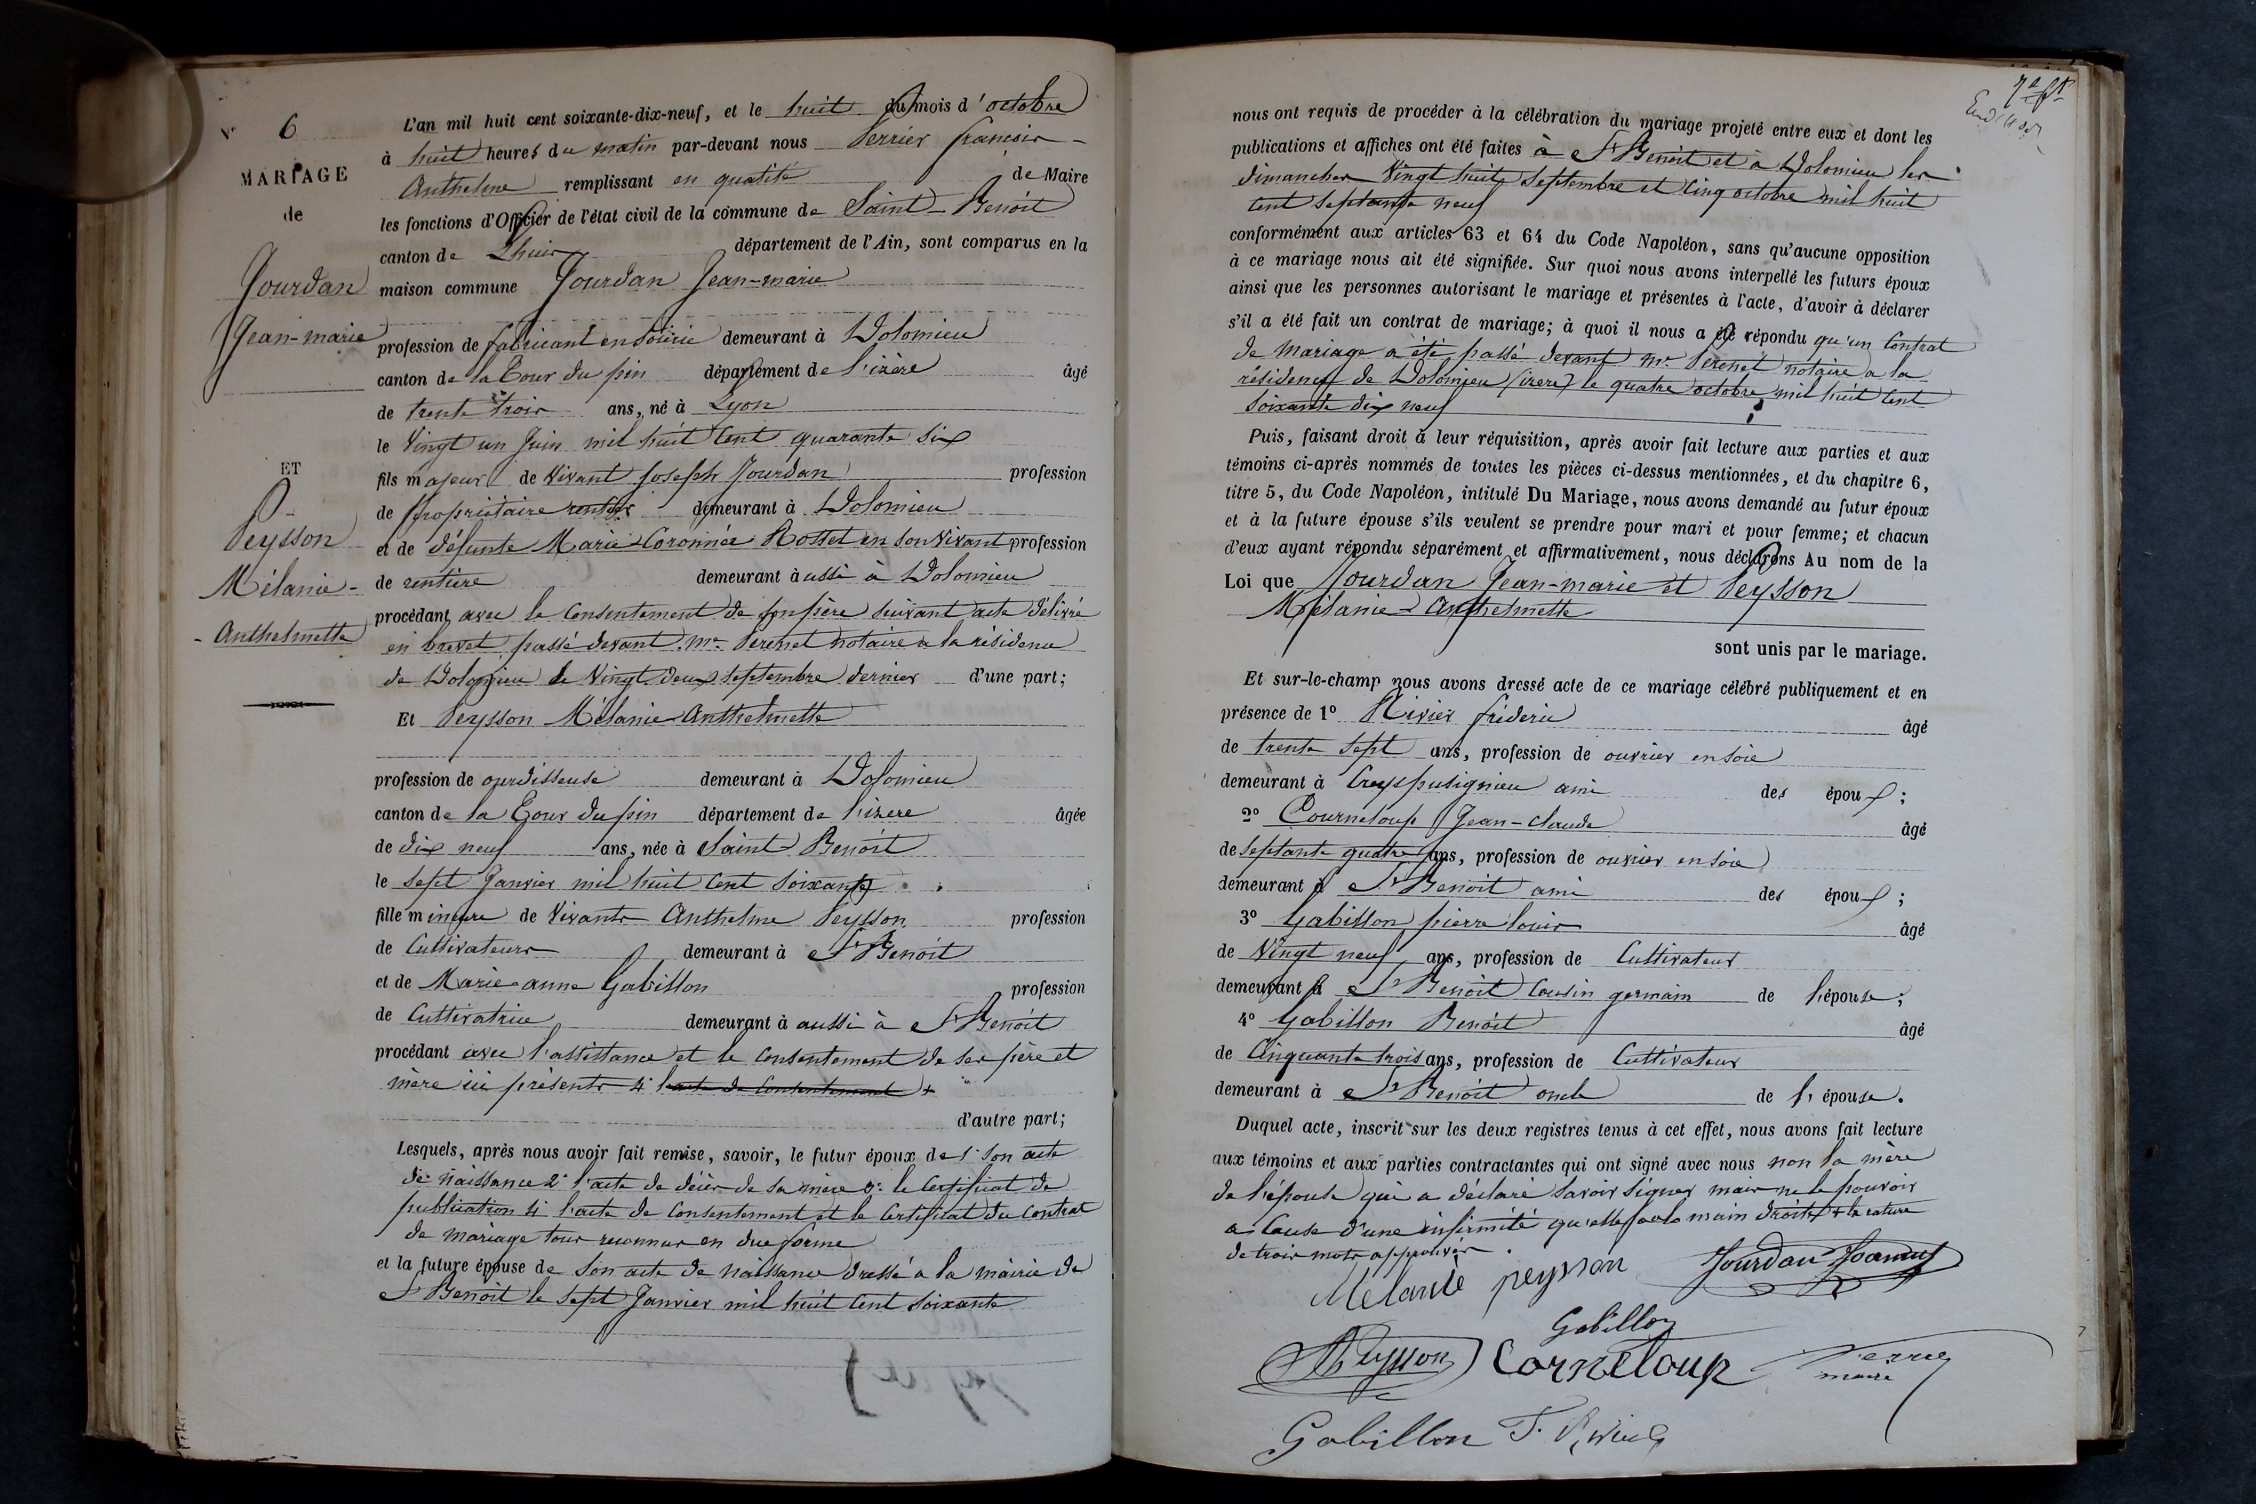 N° 6
MARIAGE
de
Jourdan
Jean-marie
ET
Peysson
Mélanie-
-Anthelmette
L'an mil huit cent soixante-dix-neuf, et le huit du mois d'octobre
à huit heures du matin par-devant nous Perrier francois-
Anthelme remplissant en qualité de Maire
les fonctions d'Officier de l'état civil de la commune de Saint-Benoit
canton de Lhuis département de l'Ain, sont comparus en la
maison commune Jourdan Jean-marie
profession de fabricant en soierie demeurant à Dolomieu
canton de la Tour du pin département de l'izère âgé
de trente trois ans, né à Lyon
le Vingt un Juin mil huit Cent quarante Six
fils majeur de Vivant Joseph Jourdan profession
de propriétaire rentier demeurant à Dolomieu
et de défunte Marie Rosset en son Vivant profession
de rentière demeurant à aussi à Dolomieu
procédant avec le Consentement de son père Suivant acte délivré
en brevet passé devant me notaire a la résidence
de Dolomieu le Vingt deux septembre dernier d'une part;
Et Peysson Mélanie-Anthelmette
profession de ourdisseuse demeurant à Dolomieu
canton de la Tour du pin département de l'izere âgée
de dix neuf ans, née à Saint Benoit
le sept Janvier mil huit Cent soixante
fille mineure de Vivants Anthelme Peysson profession
de Cultivateurs demeurant à St Benoit
et de Marie-anne Gabillon profession
de Cultivatrice demeurant à aussi à St Benoit
procédant avec l'assistance et le Consentement de ses père et
mère ici présents 4° l'acte de Consentement +
d'autre part;
Lesquels, après nous avoir fait remise, savoir, le futur époux de 1° Son acte
de Naissance 2° l'acte de décès de sa mère 3° le Certificat de
publication 4° l'acte de Consentement et le Certificat du Contrat
de mariage tous reconnus en due forme
et la future épouse de Son acte de Naissance dressé a la mairie de
St Benoit le Sept Janvier mil huit Cent Soixante
nous ont requis de procéder à la célébration du mariage projeté entre eux et dont les
publications et affiches ont été faites à St Benoit et à Dolomieu les
dimanches Vingt huit Septembre et Cinq octobre mil huit
Cent Septante neuf
conformément aux articles 63 et 64 du Code Napoléon, sans qu'aucune opposition
à ce mariage nous ait été signifiée. Sur quoi nous avons interpellé les futurs époux
ainsi que les personnes autorisant le mariage et présentes à l'acte, d'avoir à déclarer
s'il a été fait un contrat de mariage; à quoi il nous a été répondu qu'un Contrat
de Mariage a été passé devant me notaire a la
résidence de Dolomieu (izere) le quatre octobre mil huit Cent
Soixante dix neuf
Puis, faisant droit à leur réquisition, après avoir fait lecture aux parties et aux
témoins ci-après nommés de toutes les pièces ci-dessus mentionnées, et du chapitre 6,
titre 5, du Code Napoléon, intitulé Du Mariage, nous avons demandé au futur époux
et à la future épouse s'ils veulent se prendre pour mari et pour femme; et chacun
d'eux ayant répondu séparément et affirmativement, nous déclarons Au nom de la
Loi que Jourdan Jean-marie et Peysson
Mélanie-Anthelmette
sont unis par le mariage.
Et sur-le-champ nous avons dressé acte de ce mariage célébré publiquement et en
présence de 1° Rivier fréderic âgé
de trente Sept ans, profession de ouvrier en soie
demeurant à Creyspusignieu ami des époux;
2° Courneloup Jean-claude âgé
de Septante quatre ans, profession de ouvrier en soie
demeurant à St Benoit ami des époux;
3° Gabillon pierre louis âgé
de Vingt neuf ans, profession de Cultivateur
demeurant à St Benoit Cousin germain de l'épouse;
4° Gabillon Benoit âgé
de Cinquante trois ans, profession de Cultivateur
demeurant à St Benoit oncle de l'épouse.
Duquel acte, inscrit sur les deux registres tenus à cet effet, nous avons fait lecture
aux témoins et aux parties contractantes qui ont signé avec nous non la mère
de l'épouse qui a déclaré Savoir Signer mais ne le pouvoir
a Cause d'une infirmité qu'elle a a la main droite + la rature
de trois mots approuvés.
Mélanie peysson Jourdan
Gabillon
Peysson Corneloup Perrier
maire
Gabillon F. Rivier